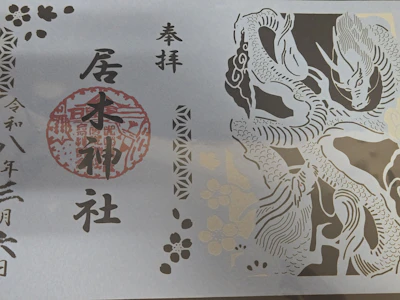 奉拝
居木神社
令和八年三月六日